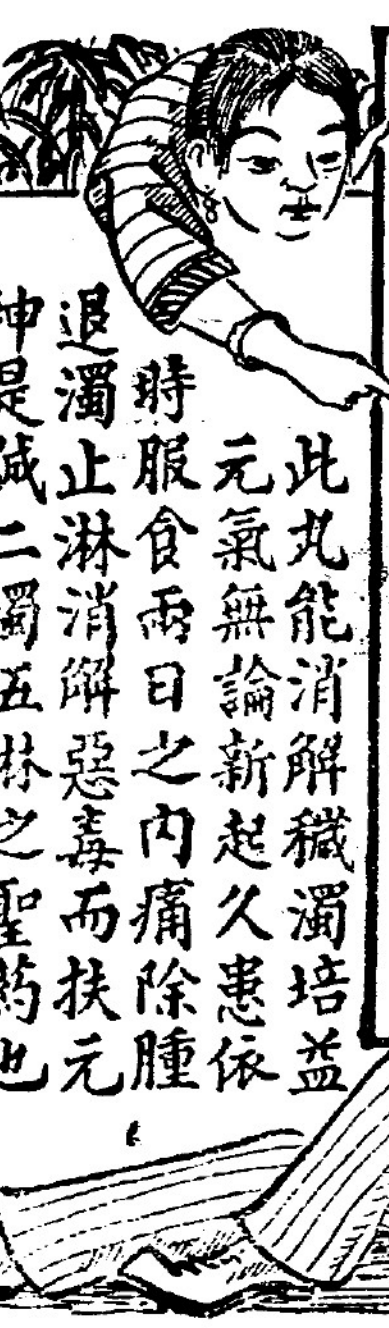 此丸能消解穢濁培益
元氣無論新起久患依
時服食兩日之內痛除腫
退濁止淋消解惡毒而扶元
神是誠二濁五淋之聖药也